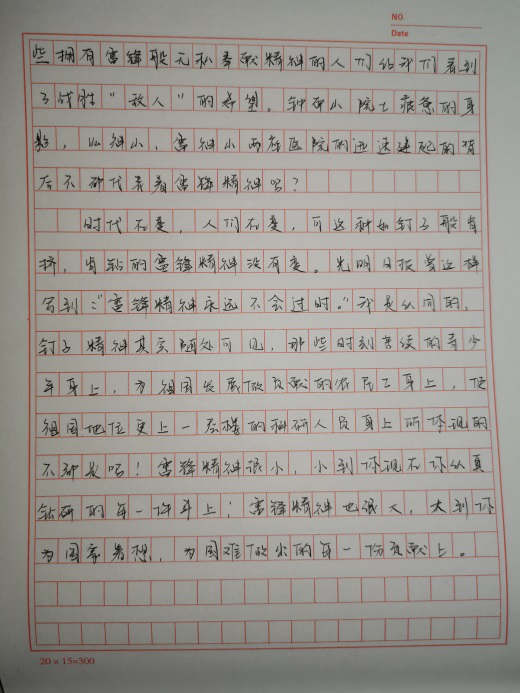 NO
Date
些拥有雷锋般无私奉献精神的人们给我们看到
了战胜“敌人”的希望。钟南山院士疲惫的身
影，火神山、雷神山两座医院的迅速建起的背
后不都代表着雷锋精神吗？
时代在变，人们在变，可这种如钉子般肯
挤，肯钻的雷锋精神没有变。光明日报曾这样
写到：“雷锋精神永远不会过时。”我是认同的，
钉子精神其实随处可见，那些时刻苦读的青少
年身上，为祖国发展做贡献的农民工身上，使
祖国地位更上一层楼的科研人员身上所体现的
不都是吗！雷锋精神很小，小到体现在你认真
钻研的每一件事上；雷锋精神也很大，大到你
为国家着想，为国难做出的每一份贡献上。
20×15=300